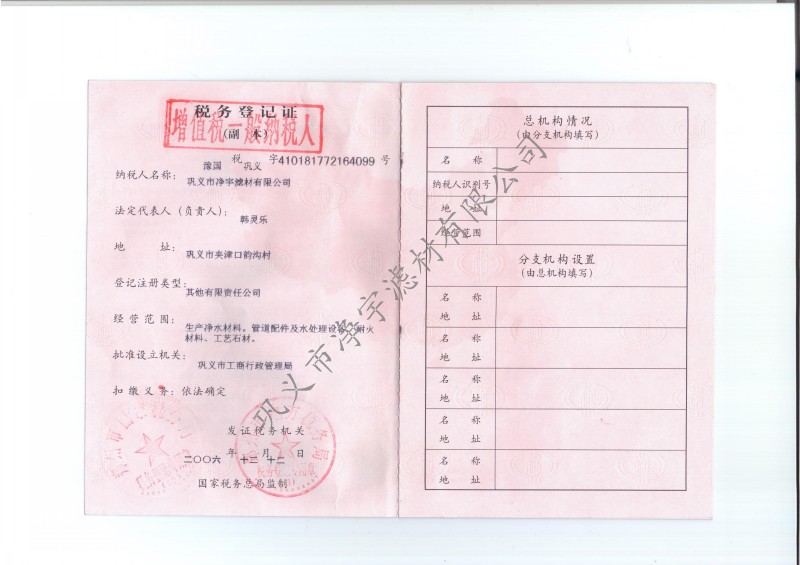 税务登记证
(副 本)
增值税一般纳税人
豫国 税 巩义 字410181772164099 号
纳税人名称: 巩义市净宇滤材有限公司
法定代表人（负责人）: 韩灵乐
地 址: 巩义市夹津口韵沟村
登记注册类型: 其他有限责任公司
经 营 范 围: 生产净水材料。管道配件及水处理设备、耐火
材料、工艺石材。
批准设立机关: 巩义市工商行政管理局
扣 缴 义 务: 依法确定
发证税务机关
二〇〇六 年 十二 月 十二 日
国家税务总局监制
总机构情况
(由分支机构填写)
名 称
纳税人识别号
地 址
经营范围
分支机构设置
(由总机构填写)
名 称
地 址
名 称
地 址
名 称
地 址
名 称
地 址
名 称
地 址
巩义市净宇滤材有限公司